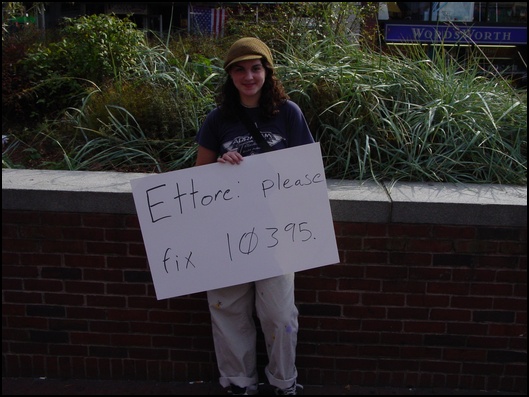 WORDSWORTH
Ettore: please
fix 10395.